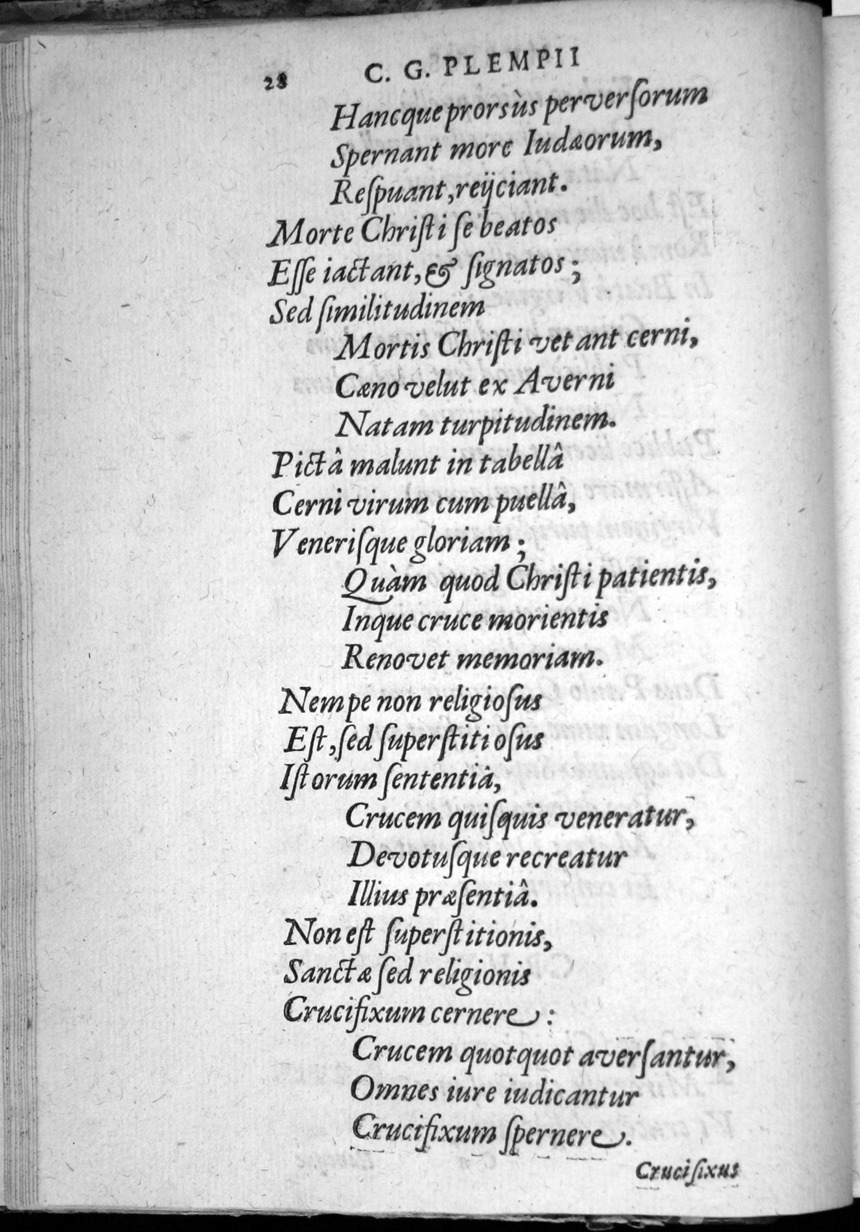 28 C. G. PLEMPII
Hancque prorsùs perverſorum
Spernant more Iudæorum,
Reſpuant, reijciant.
Morte Chriſti ſe beatos
Eſſe iactant, & ſignatos;
Sed ſimilitudinem
Mortis Chriſti vetant cerni,
Cæno velut ex Averni
Natam turpitudinem.
Pictâ malunt in tabellâ
Cerni virum cum puellâ,
Veneriſque gloriam;
Quàm quod Chriſti patientis,
Inque cruce morientis
Renovet memoriam.
Nempe non religioſus
Eſt, ſed ſuperſtitioſus
Iſtorum ſententiâ,
Crucem quiſquis veneratur,
Devotuſque recreatur
Illius præſentiâ.
Non eſt ſuperſtitionis,
Sanctæ ſed religionis
Crucifixum cernere:
Crucem quotquot averſantur,
Omnes iure iudicantur
Crucifixum ſpernere.
Crucifixus